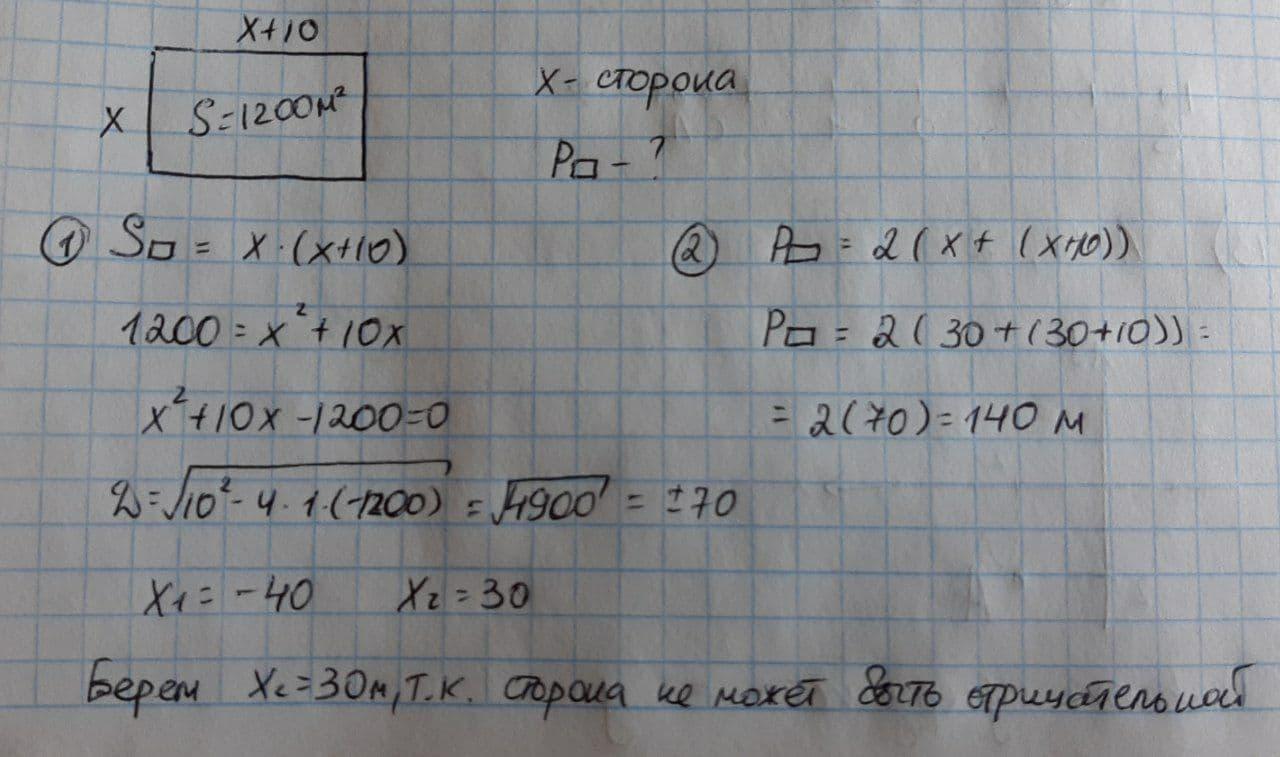 x+10
x
S=1200м²
x - сторона
P▭ - ?
① S▭ = x·(x+10)
1200 = x² + 10x
x² + 10x - 1200 = 0
D = √10² - 4·1·(-1200) = √4900 = ±70
x₁ = -40 x₂ = 30
② P▭ = 2(x + (x+10))
P▭ = 2(30 + (30+10)) =
= 2(70) = 140 м
Берем x₂ = 30м, т.к. сторона не может быть отрицательной